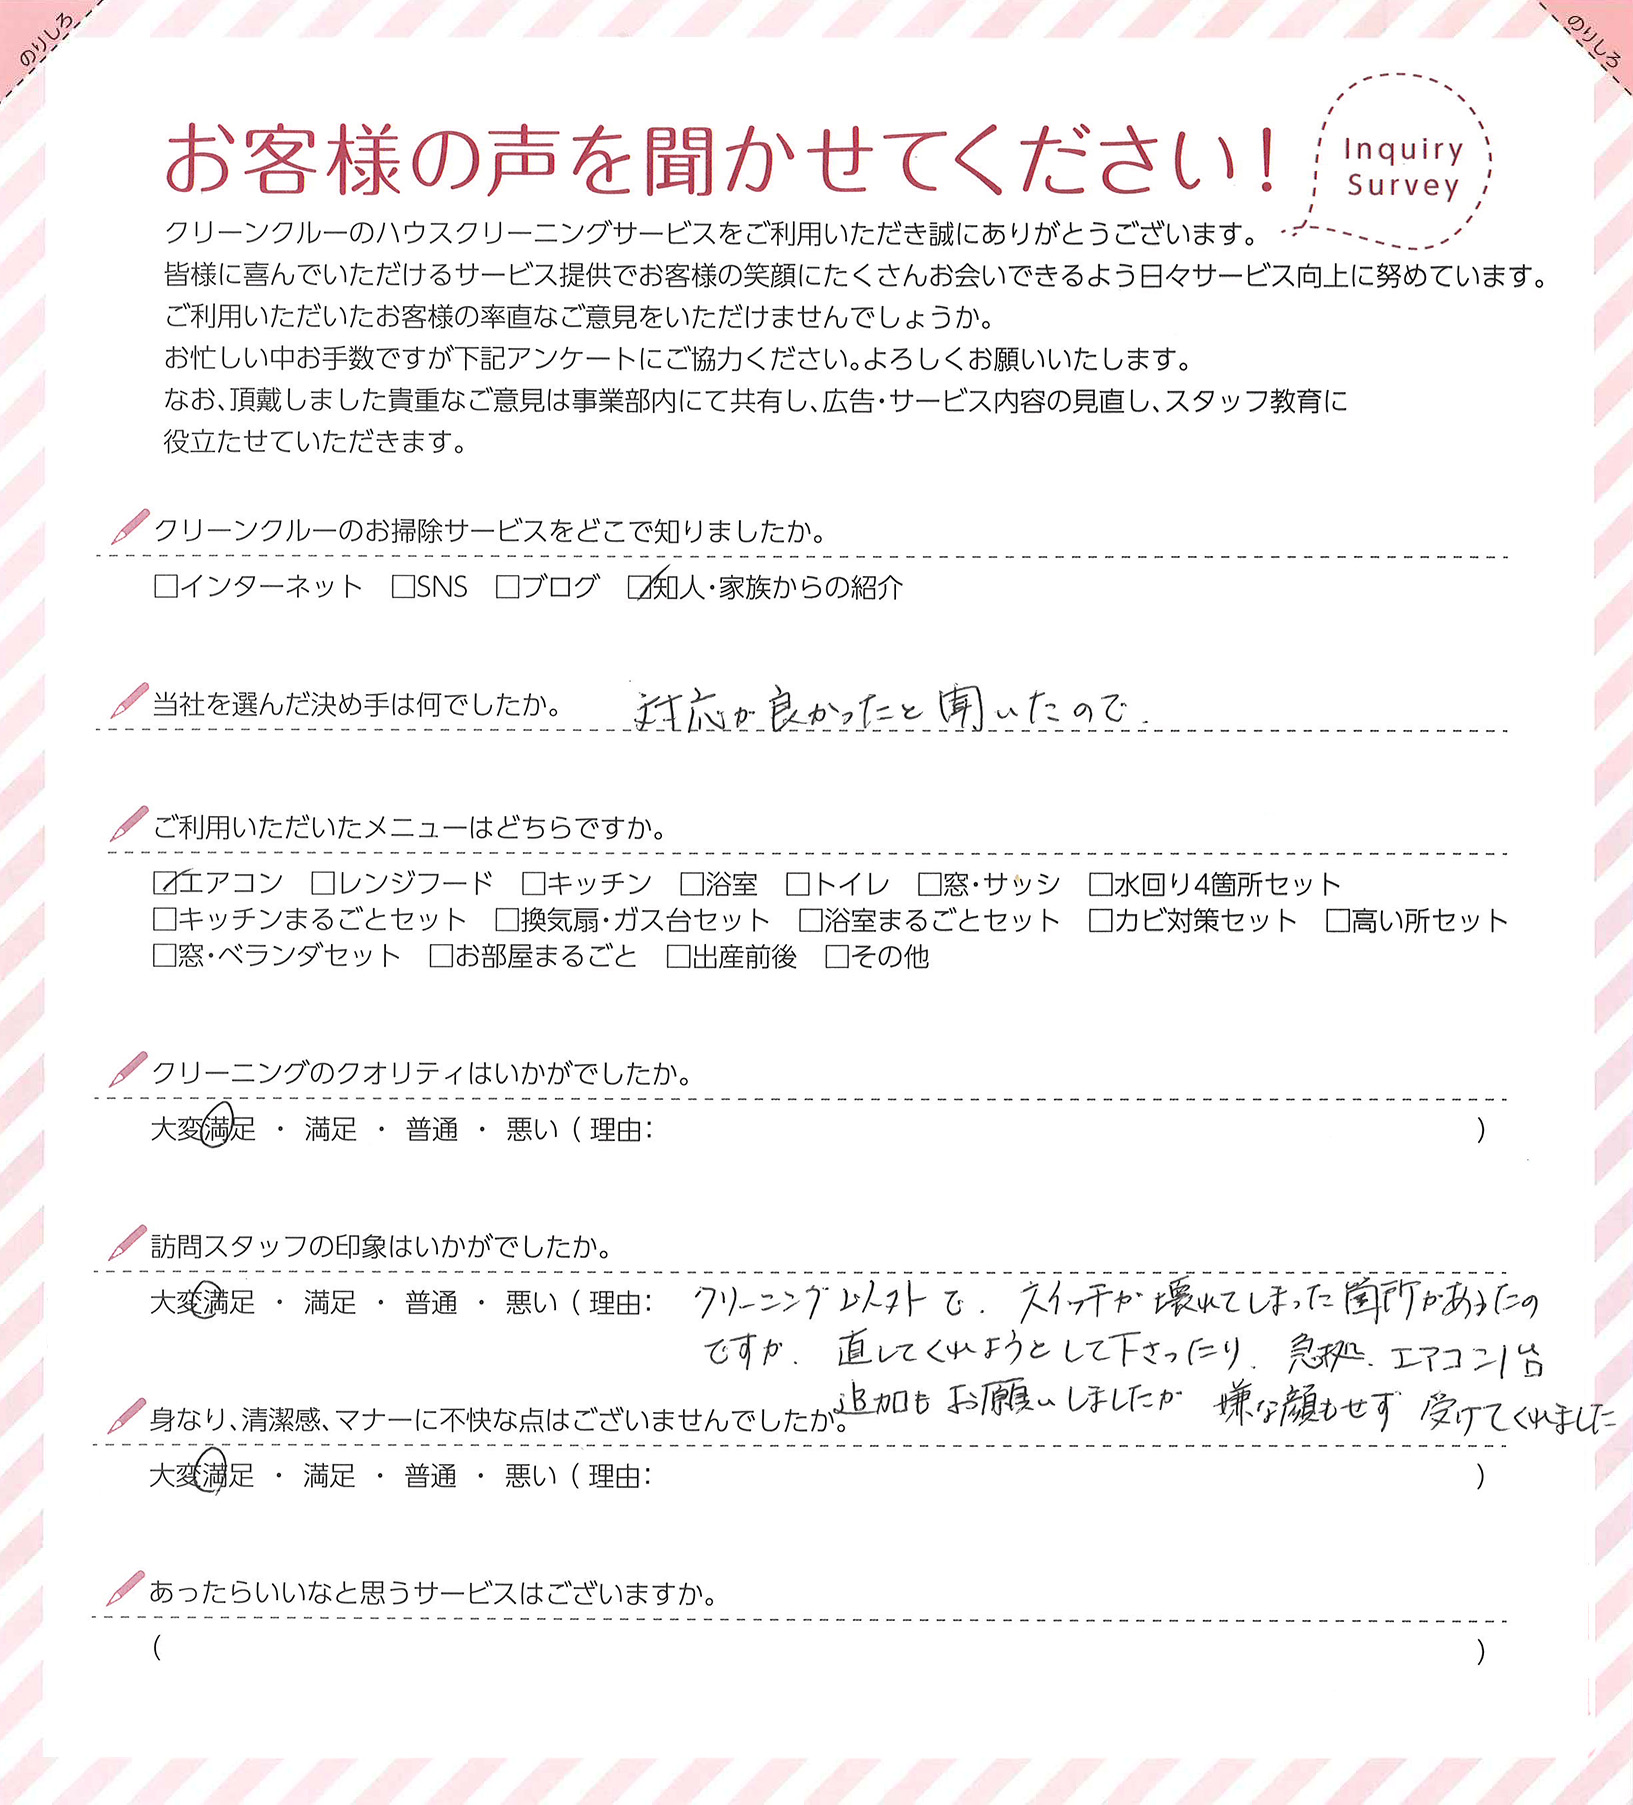 のりしろ
のりしろ
お客様の声を聞かせてください！
Inquiry
Survey
クリーンクルーのハウスクリーニングサービスをご利用いただき誠にありがとうございます。
皆様に喜んでいただけるサービス提供でお客様の笑顔にたくさんお会いできるよう日々サービス向上に努めています。
ご利用いただいたお客様の率直なご意見をいただけませんでしょうか。
お忙しい中お手数ですが下記アンケートにご協力ください。よろしくお願いいたします。
なお、頂戴しました貴重なご意見は事業部内にて共有し、広告・サービス内容の見直し、スタッフ教育に
役立たせていただきます。
クリーンクルーのお掃除サービスをどこで知りましたか。
□インターネット □SNS □ブログ ☑知人・家族からの紹介
当社を選んだ決め手は何でしたか。 対応が良かったと聞いたので.
ご利用いただいたメニューはどちらですか。
☑エアコン □レンジフード □キッチン □浴室 □トイレ □窓・サッシ □水回り4箇所セット
□キッチンまるごとセット □換気扇・ガス台セット □浴室まるごとセット □カビ対策セット □高い所セット
□窓・ベランダセット □お部屋まるごと □出産前後 □その他
クリーニングのクオリティはいかがでしたか。
大変満足 ・ 満足 ・ 普通 ・ 悪い ( 理由: )
訪問スタッフの印象はいかがでしたか。
大変満足 ・ 満足 ・ 普通 ・ 悪い ( 理由: クリーニング以外で、スイッチが壊れてしまった箇所があったの
ですが、直してくれようとして下さったり、急拠、エアコン1台
追加もお願いしましたが 嫌な顔もせず 受けてくれました
身なり、清潔感、マナーに不快な点はございませんでしたか。
大変満足 ・ 満足 ・ 普通 ・ 悪い ( 理由: )
あったらいいなと思うサービスはございますか。
( )